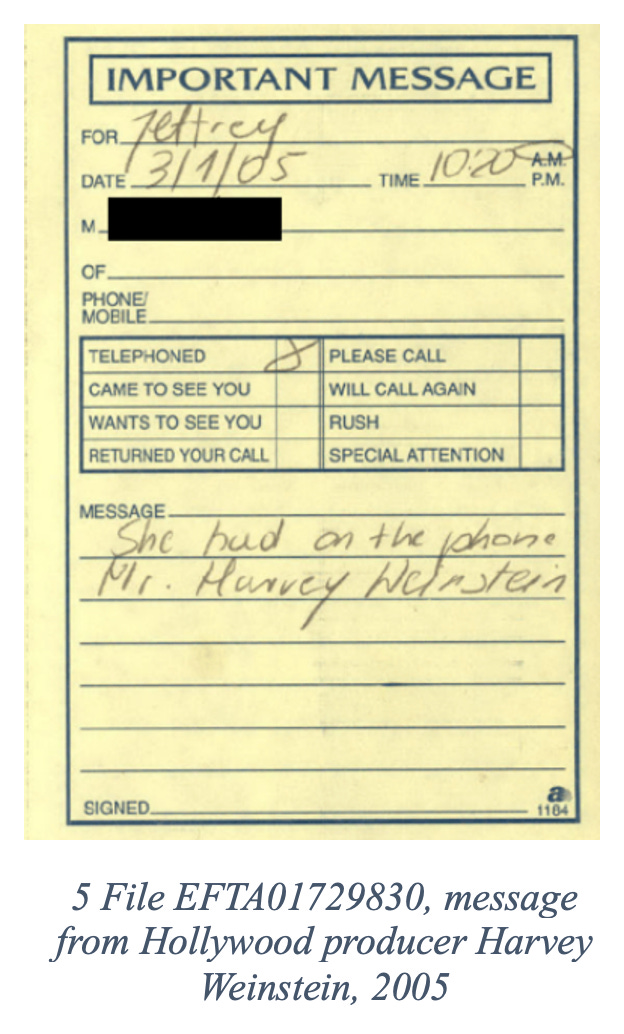 IMPORTANT MESSAGE
FOR Jeffrey
DATE 3/1/05 TIME 10:20 A.M.
P.M.
M
OF
PHONE/
MOBILE
TELEPHONED PLEASE CALL
CAME TO SEE YOU WILL CALL AGAIN
WANTS TO SEE YOU RUSH
RETURNED YOUR CALL SPECIAL ATTENTION
MESSAGE
She had on the phone
Mr. Harvey Weinstein
SIGNED
a
1184
5 File EFTA01729830, message
from Hollywood producer Harvey
Weinstein, 2005